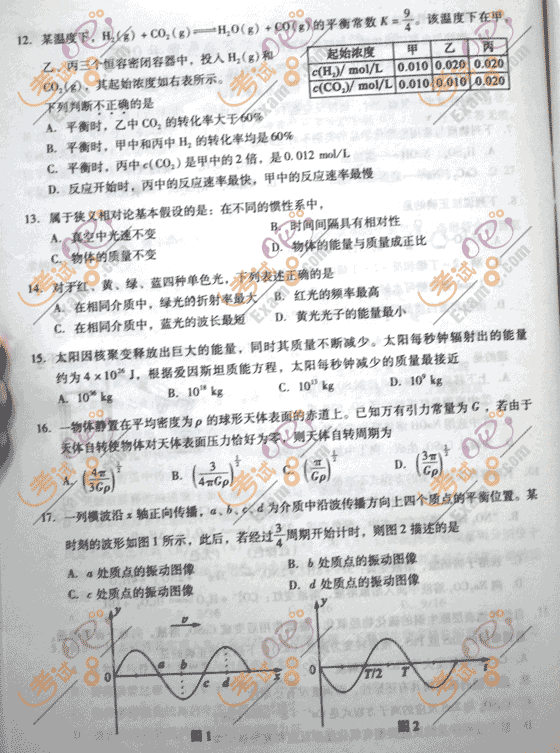 12. 某温度下，H₂(g) + CO₂(g) ⇌ H₂O(g) + CO(g)的平衡常数 K = 9/4。该温度下在甲、
乙、丙三个恒容密闭容器中，投入 H₂(g)和
CO₂(g)，其起始浓度如右表所示。
起始浓度 甲 乙 丙
c(H₂)/ mol/L 0.010 0.020 0.020
c(CO₂)/ mol/L 0.010 0.010 0.020
下列判断不正确的是
A. 平衡时，乙中 CO₂ 的转化率大于60%
B. 平衡时，甲中和丙中 H₂ 的转化率均是 60%
C. 平衡时，丙中 c(CO₂)是甲中的 2 倍，是 0.012 mol/L
D. 反应开始时，丙中的反应速率最快，甲中的反应速率最慢
13. 属于狭义相对论基本假设的是：在不同的惯性系中，
A. 真空中光速不变 B. 时间间隔具有相对性
C. 物体的质量不变 D. 物体的能量与质量成正比
14. 对于红、黄、绿、蓝四种单色光，下列表述正确的是
A. 在相同介质中，绿光的折射率最大 B. 红光的频率最高
C. 在相同介质中，蓝光的波长最短 D. 黄光光子的能量最小
15. 太阳因核聚变释放出巨大的能量，同时其质量不断减少。太阳每秒钟辐射出的能量
约为 4 × 10²⁶ J，根据爱因斯坦质能方程，太阳每秒钟减少的质量最接近
A. 10³⁶ kg B. 10¹⁸ kg C. 10¹³ kg D. 10⁹ kg
16. 一物体静置在平均密度为 ρ 的球形天体表面的赤道上。已知万有引力常量为 G，若由于
天体自转使物体对天体表面压力恰好为零，则天体自转周期为
A. (4π/3Gρ)^(1/2) B. (3/4πGρ)^(1/2) C. (π/Gρ)^(1/2) D. (3π/Gρ)^(1/2)
17. 一列横波沿 x 轴正向传播，a、b、c、d 为介质中沿波传播方向上四个质点的平衡位置。某
时刻的波形如图 1 所示，此后，若经过 3/4 周期开始计时，则图 2 描述的是
A. a 处质点的振动图像 B. b 处质点的振动图像
C. c 处质点的振动图像 D. d 处质点的振动图像
y v 0 a b c d x
图 1
y 0 T/2 T t
图 2
考试吧
Exam8.com